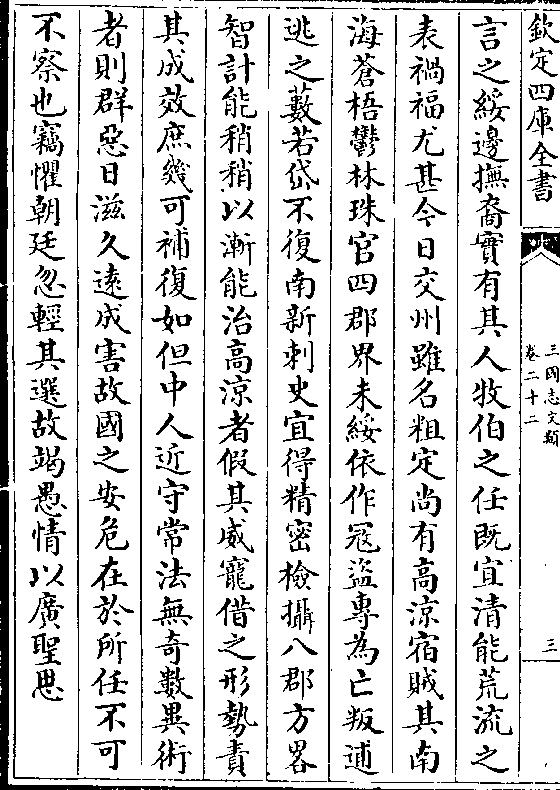 欽定四庫全書
三國志文類
卷二十二
三
言之綏邊撫裔實有其人牧伯之任既宜清能荒流之
表禍福尤甚今日交州雖名粗定尚有高涼宿賊其南
海蒼梧鬱林珠官四郡界未綏依作寇盜專為亡叛逋
逃之藪若岱不復南新刺史宜得精密檢攝八郡方畧
智計能稍稍以漸能治高涼者假其威寵借之形勢責
其成效庶幾可補復如但中人近守常法無奇數異術
者則群惡日滋久遠成害故國之安危在於所任不可
不察也竊懼朝廷忽輕其選故竭愚情以廣聖思